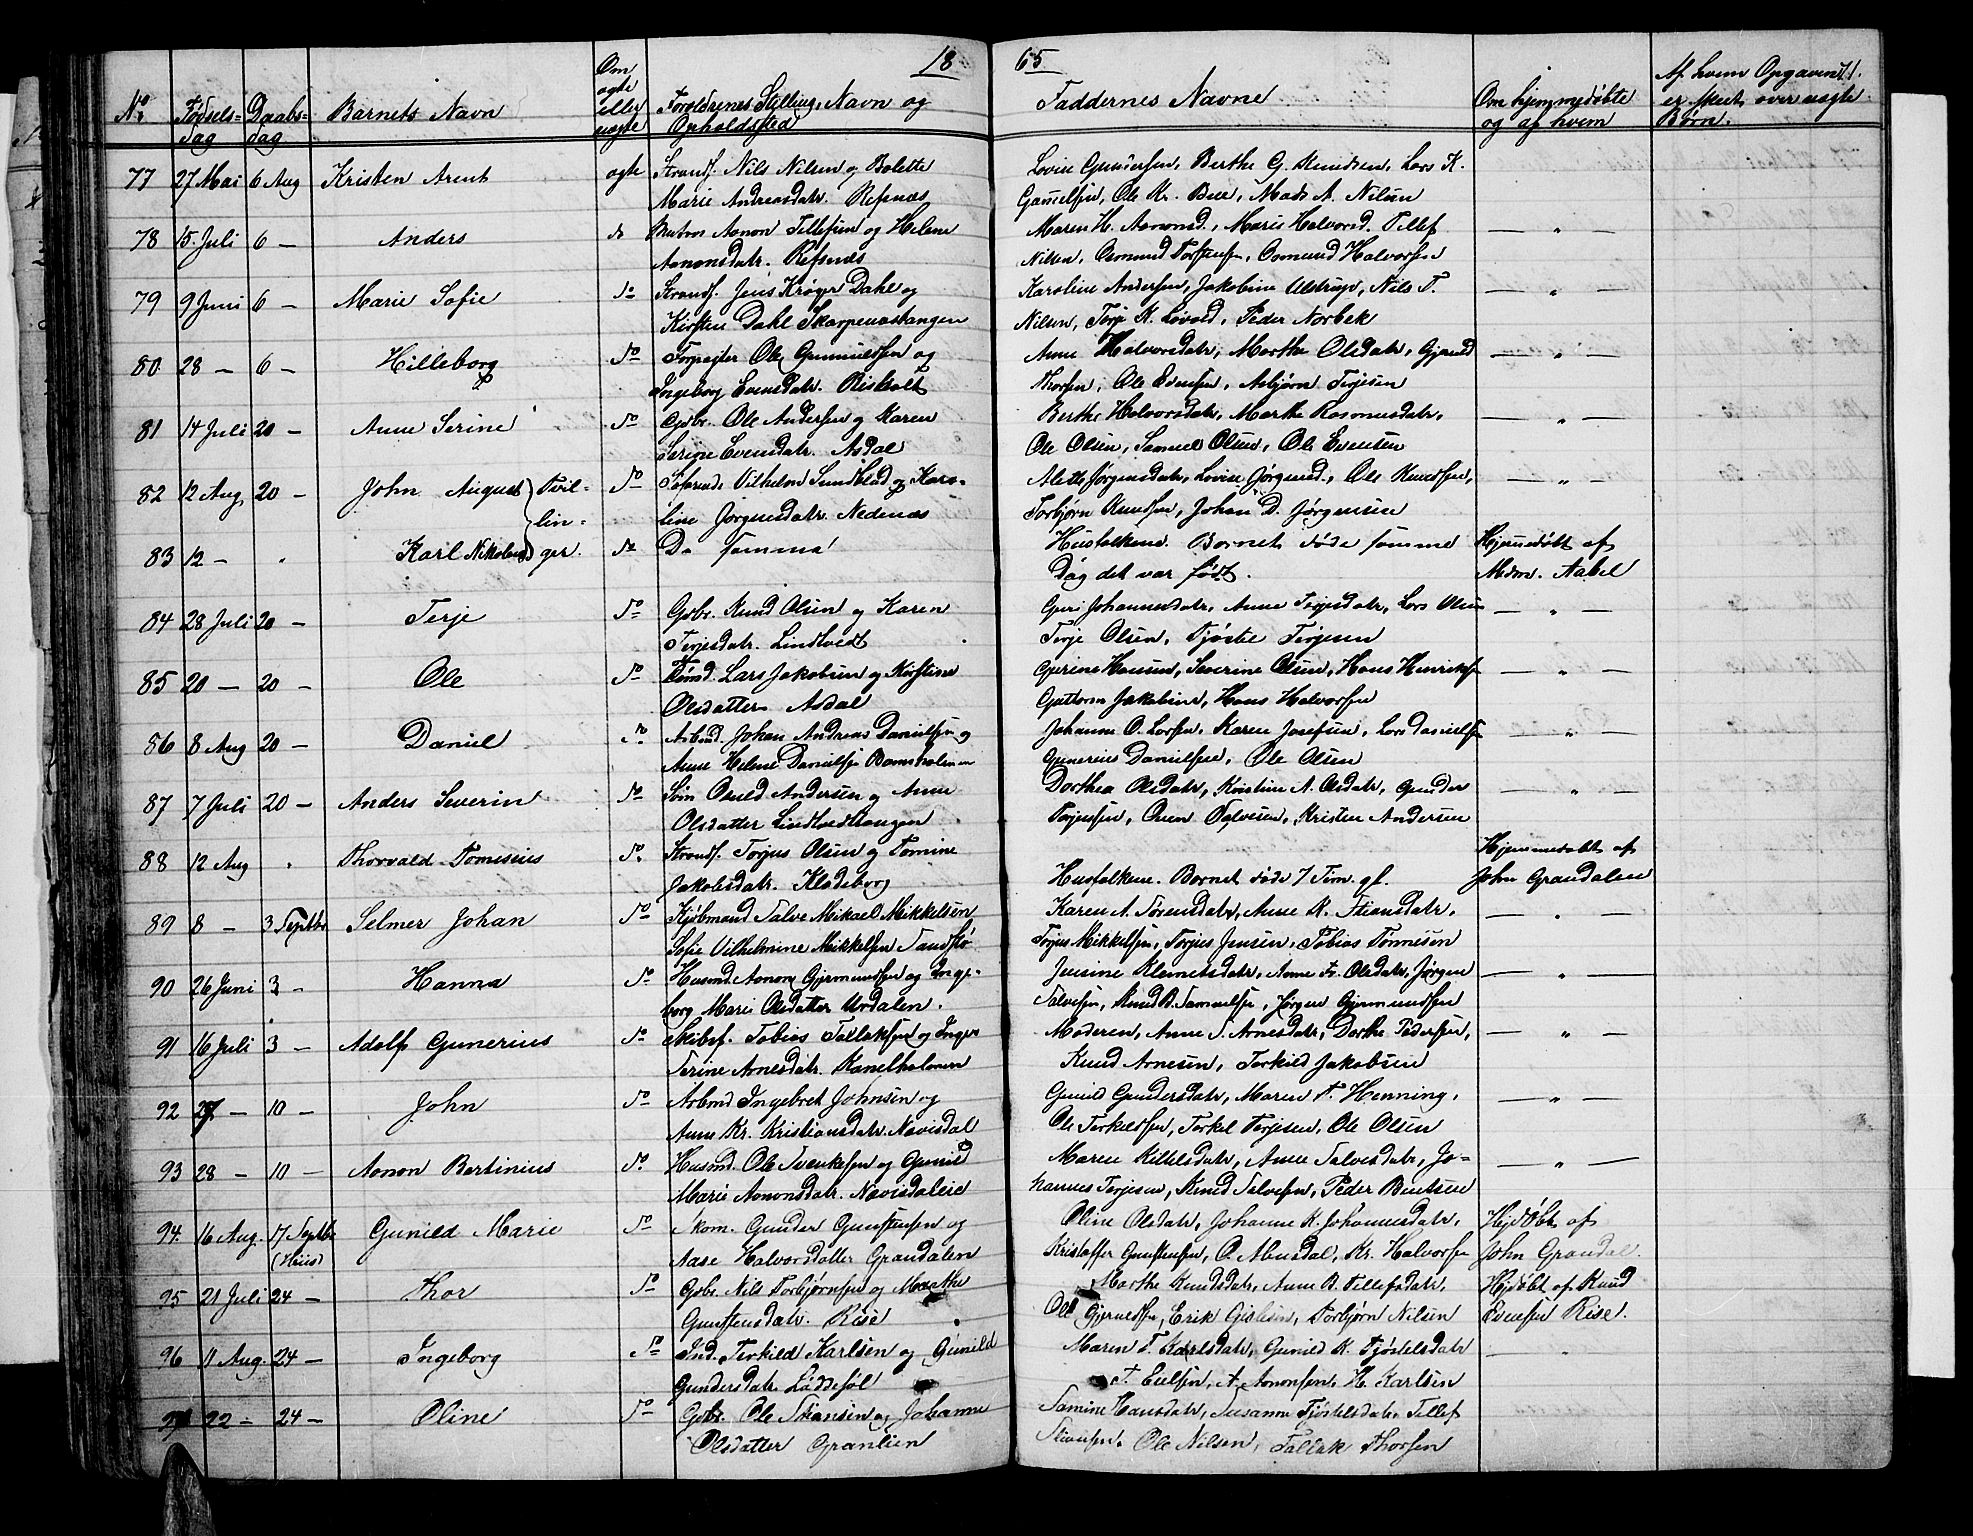 18 65
No Fødsels- Daabs- Barnets Navn Om ægte eller uægte Forældrenes Stilling, Navn og Faddernes Navne Om hjemmedøbte Af hvem Opgaven
dag dag Opholdsted og af hvem er skeet over uægte Børn.
77 27 Mai 6 Aug Kristen Arent ægte Strandf. Nils Nilsen og Bolette Lovise Gundersen, Berthe G. Knudsen, Lars K.
Marie Andreasdatr. Refsnæs Ole Kr. Bee, Mads A. Nilsen
78 15 Juli 6 — Anders do Aanon Tellefsen og Helene Maren H. Aanonsd., Maris Halvorsd. Tellef — " —
Aanonsdatr. Refsnæs Nilsen, Osmund Torstensen, Osmund Halvorsen
79 9 Juni 6 — Marie Sofie do Strandf. Jens Krøger Dahl og Karoline Andersen, Jakobine Alstrup, Nils T. — " —
Kirsten Dahl Skarpenæstangen Nilsen, Terje K. Løvold, Peder Norbek
80 28 — 6 — Hilleborg do Forpagter Ole Gunnuldsen og Anne Halvorsdatr, Marthe Olsdatr, Gjeruld — " —
Ingeborg Evensdatr. Bisholt Thorsen, Ole Evensen, Asbjørn Terjesen
81 14 Juli 20 — Anne Serine do Gbr. Ole Andersen og Karen Berthe Halvorsdatr, Marthe Rasmusdatr, — " —
Serine Evensdatr. Asdal Ole Olsen, Samuel Olsen, Ole Evensen
82 12 Aug 20 — John August Tvil- do Søfarende Vilhelm Sundblad og Karo- Alette Jørgensdatr, Lovise Jørgensd., Ole Knudsen, — " —
lin- line Jørgensdatr. Nedenæs Torbjørn Knudsen, Johan D. Jørgensen
83 12 — " Karl Nikolai ger. do De samme Husfolkene. Barnet døde samme Hjemmedøbt af
Dag det var født. Mdm. Aabel
84 28 Juli 20 — Terje do Gbr. Knud Olsen og Karen Guri Johannesdatr, Anne Terjesdatr, Lars Olsen — " —
Terjesdatr. Lindtvedt Terje Olsen, Tjøstel Terjesen
85 20 — 20 — Ole do Tømd. Lars Jakobsen og Kirstine Gjerine Hansen, Severine Olsen, Hans Henriksen — " —
Olsdatter Asdal Guttorm Jakobsen, Hans Halvorsen
86 8 Aug 20 — Daniel do Arbmd. Johan Andreas Danielsen og Johanne O. Larsen, Karen Josefsen, Lars Danielsen — " —
Anne Helene Danielsen Bomsholmen Gunerius Danielsen, Ole Olsen
87 7 Juli 20 — Anders Severin do Søm Osuld Andersen og Anne Dorthea Olsdatr, Kristine A. Olsdatr, Gunder — " —
Olsdatter Lindtvedtangen Terjesen, Salvesen, Kristen Andersen
88 12 Aug " Thorvald Tomesius do Strandf. Torjus Olsen og Tomine Hjemmedøbt af
Jakobsdatr. Klodeborg Husfolkene. Barnet døde 7 Tim. gl. John Grandalen
89 8 — 3 Septbr Selmer Johan do Kjøbmand Salve Mikael Mikkelsen Karen A. Sørensdatr, Anne K. Stiansdatr. — " —
Sofie Vilhelmine Mikkelsen Sandstø Torjus Mikkelsen, Torjus Jensen, Tobias Tønnesen
90 26 Juni 3 — Hanna do Husmd. Aanon Gjermundsen og Inge- Jensine Klemetsdatr, Anne Fr. Olsdatr, Jørgen — " —
borg Marie Olsdatter Urdalen. Salvesen, Knud B. Samuelsen, Jørgen Gjermundsen
91 16 Juli 3 — Adolf Gunerius do Skibsf. Tobias Tallaksen og Inger Moderen, Anne S. Arnesdatr, Dorthe Pedersen, — " —
Serine Arnesdatr. Kanelholmen Knud Arnesen, Terkild Jakobsen
92 27 — 10 — John do Arbmd Ingebret Johnsen og Gunild Gundersdatr, Maren T. Henning, — " —
Anne Kr. Kristiansdatr. Navisdal Ole Terkildsen, Terkel Terjesen, Ole Olsen
93 28 — 10 — Aanon Bertinius do Husmd. Ole Svenkesen og Gunild Maren Kittelsdatr, Anne Salvesdatr, Jo- — " —
Marie Aanonsdatr. Navisdaleie hannes Terjesen, Knud Salvesen, Peder Bentsen
94 16 Aug. 17 Septbr Gunild Marie do Skom. Gunder Gunstensen og Oline Olsdatr, Johanne K. Johannesdatr, Hjdøbt af
(Huus) Aase Halvorsdatter Grandalen Kristoffer Gunstensen, O. Alnsdal, Kr. Halvorsen John Grandal.
95 21 Juli 24 — Thor do Gbr. Nils Torbjørnsen og Marthe Marthe Knudsdatr, Anne B. Tellefsdatr, Hjdøbt af Knud
Gunstensdatr. Rise Ole Gjeruldsen, Erik Gislesen, Torbjørn Nilsen Evensen Rise.
96 11 Aug. 24 — Ingeborg do Ind. Terkild Karlsen og Gunild Maren T. Karlsdatr, Gunild K. Tjøstelsdatr — " —
Gundersdatr Løddesøl T. Eielsen, A. Aanonsen, H. Karlsen
97 22 — 24 — Oline do Gbr. Ole Stiansen og Johanne Samine Hansdatr, Susanne Tjøstelsdatr. Tellef
Olsdatter Granlien Stiansen. Ole Nilsen, Tallak Thorsen